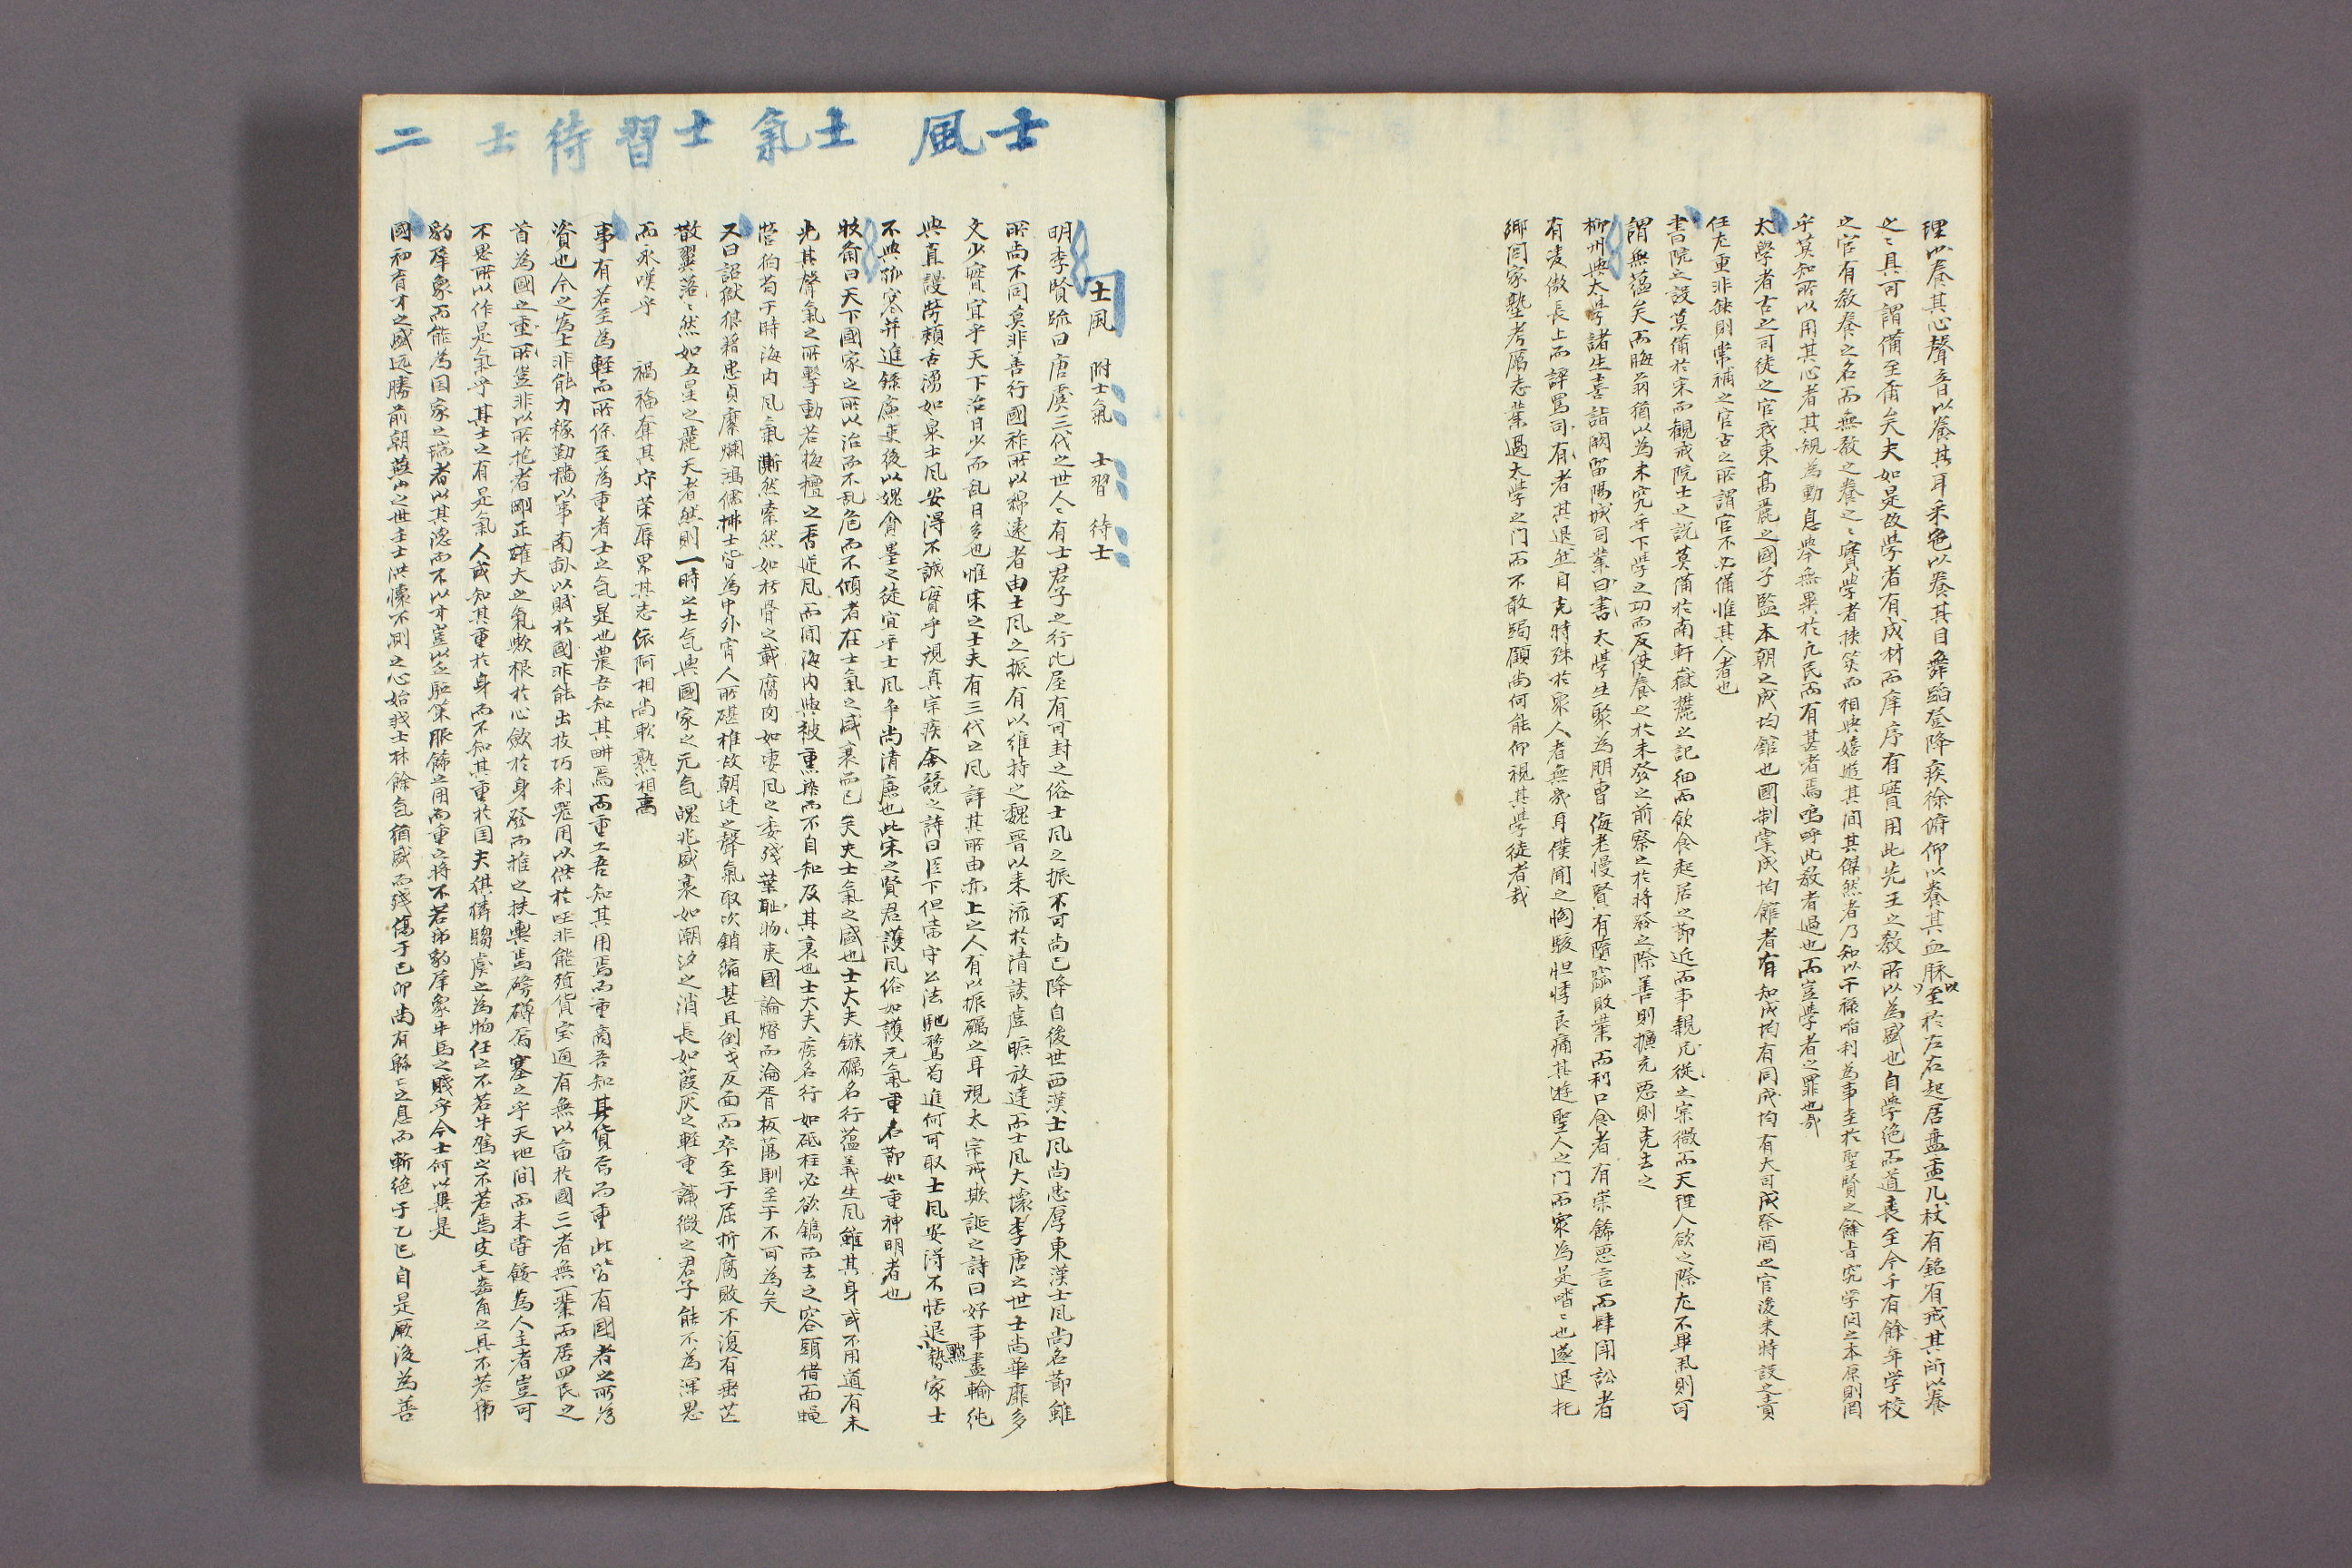 理以養其心聲音以養其耳采色以養其目舞蹈登降疾徐俯仰以養其血脉以至於左右起居盤盂几杖有銘有戒其所以養
之之具可謂備至甫矣夫如是故學者有成材而庠序有實用此先王之教所以為盛也自學絶而道喪至今千有餘年学校
之官有教養之名而無教之養之之實學者挾筴而相與嬉遊其間其傑然者乃知以干祿蹈利為事至於聖賢之餘旨究学问之本原則罔
乎莫知所以用其心者其規為動息擧無異於凡民而有甚者焉嗚呼此教者過也而豈學者之罪也哉
太學者古之司徒之官我東高麗之國子監本朝之成均館也國制掌成均館者有知成均有同成均有大司成祭酒之官後来特設之責
任尤重非缺則常補之官古之所謂官不必備惟其人者也
書院之設莫備於宋而觀戒院士之説莫備於南軒嶽麓之記細而飲食起居之節近而事親凡從之宗微而天理人欲之際尤不畢具則可
謂無蘊矣而晦翁猶以為未究乎下學之功而反使養之於未發之前察之於將發之際善則擴充惡則克去之
柳州與太學諸生喜詣闕留陽城司業曰書太學生聚為朋曹侮老慢賢有墮窳敗業而利口食者有崇飾惡言而肆鬪訟者
有凌傲長上而誶罵司有者其退然自克特殊於衆人者無幾耳僕聞之恟駭怛悸良痛其遊聖人之门而衆為是㗳㗳也遂退托
鄉闾家塾考厲志業過太學之门而不敢跼顧尚何能仰視其學徒者哉
士風 士氣 士習 待士 二
士風 附士氣 士習 待士
明李賢疏曰唐虞三代之世人人有士君子之行比屋有可封之俗士风之振不可尚已降自後世西漢士风尚忠厚東漢士风尚名節雖
所尚不同莫非善行國祚所以綿遠者由士风之振有以維持之魏晋以来流於清談虛曠放達而士风大壞李唐之世士尚華靡多
文少實宜乎天下治日少而乱日多也惟宋之士夫有三代之风詳其所由亦上之人有以振礪之耳視太宗戒欺誕之詩曰好事盡輸純
與直謾勞頰舌湧如泉士风安得不誠實乎視真宗疾奔競之詩曰臣下但當守公法馳騖苟進何可取士风安得不恬退黜勢家士
不與孤寒并進錄廉吏後以媿貪墨之徒宜乎士风争尚清廉也此宋之賢君護风俗如護元氣重名節如重神明者也
牧齋曰天下國家之所以治而不乱危而不傾者在士氣之盛衰而已矣夫士氣之盛也士大夫鏃礪名行蘊義生风雖其身或不用道有未
光其聲氣之所擊動若栴檀之香逆风而聞海内與被熏染而不自知及其衰也士大夫疾名行如砥柱必欲鐫而去之容頭借面蝇
營狗苟于時海内风氣澌然索然如枯骨之載腐肉如凄风之委殘葉耻物喪國論熸而淪胥板蕩馴至于不可為矣
又曰詔獄狼藉忠貞糜爛鴻儒拂士皆為中外宵人所碪椎故朝廷之聲氣取次銷缩甚且倒戈反面而卒至于屈折腐敗不復有垂芒
散翼落落然如五星之麗天者然則一時之士气與國家之元气魄兆盛衰如潮汐之消長如葭灰之軽重識微之君子能不為深思
而永嘆乎 禍福奪其守荣辱累其志依阿相尚軟熟相高
事有若至為軽而所係至為重者士之气是也農吾知其畊焉而重工吾知其用焉而重商吾知其貨焉而重此皆有國者之所為
資也今之為士非能力稼勤穑以事南畝以賦於國非能出技巧利器用以供於国非能殖貨宝通有無以富於國三者無一業而居四民之
首為國之重所豈非以所抱者剛正雄大之氣欤根於心斂於身發而推之扶輿焉磅礴焉塞之乎天地間而未嘗餒為人主者豈可
不思所以作是氣乎其士之有是氣人或知其重於身而不知其重於国夫猉獜騶虞之為物任之不若牛駕之不若馬皮毛齒角之具不若㺔
豹犀象而能為国家之瑞者以其德而不以才豈以乏駈策服飾之用而重之將不若㺔豹犀象牛馬之賤乎今士何以異是
國初育才之盛远勝前朝燕山之世主士洪懷不測之心始我士林餘气猶盛而殘傷于己卯尚有緜緜之息而斬絶于乙巳自是厥後為善